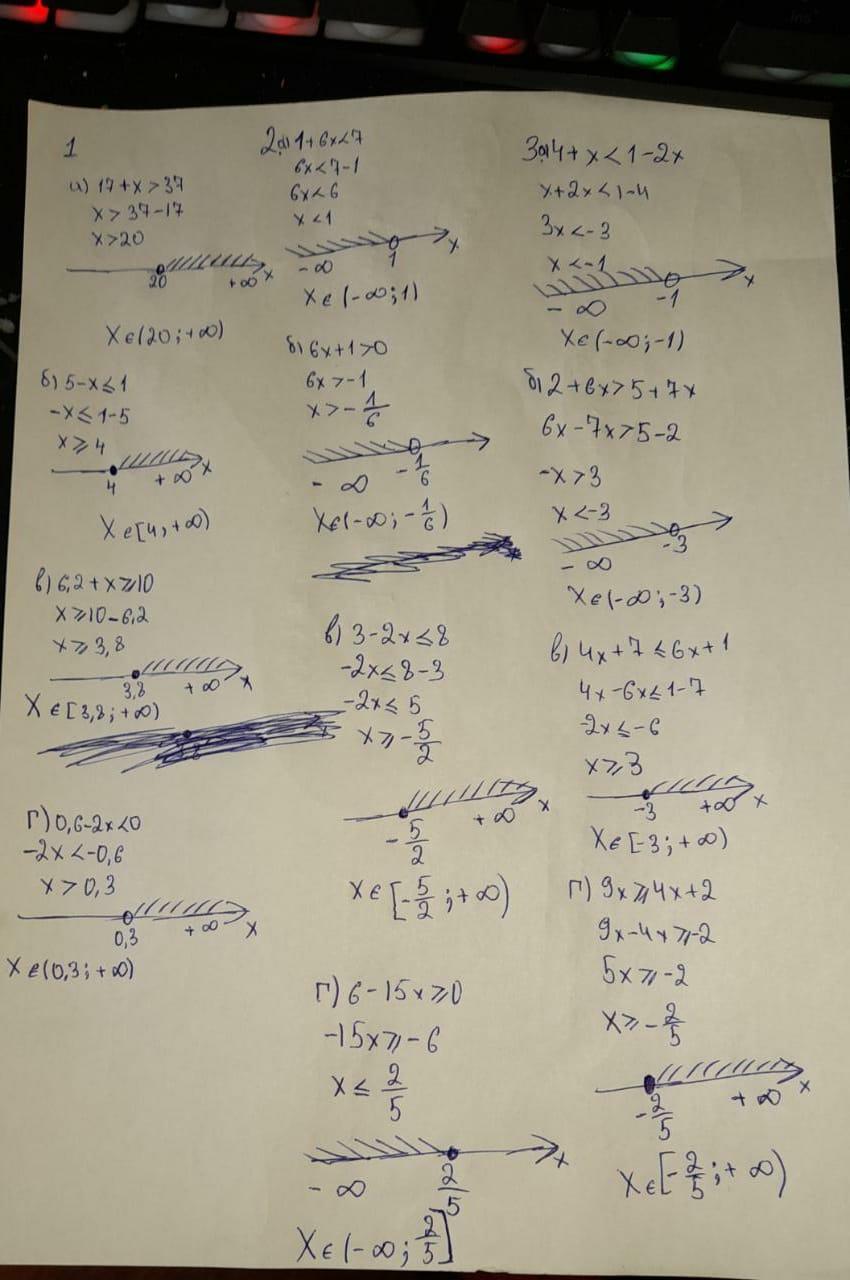 1
а) 17+x>37
x>37-17
x>20
20 +∞ x
x∈(20;+∞)
б) 5-x≤1
-x≤1-5
x≥4
4 +∞ x
x∈[4;+∞)
в) 6,2+x≥10
x≥10-6,2
x≥3,8
3,8 +∞ x
x∈[3,8;+∞)
г) 0,6-2x<0
-2x<-0,6
x>0,3
0,3 +∞ x
x∈(0,3;+∞)
2а) 1+6x<7
6x<7-1
6x<6
x<1
-∞ 1 x
x∈(-∞;1)
б) 6x+1>0
6x>-1
x>-1/6
-∞ -1/6
x∈(-∞;-1/6)
в) 3-2x≤8
-2x≤8-3
-2x≤5
x≥-5/2
-5/2 +∞ x
x∈[-5/2;+∞)
г) 6-15x≥0
-15x≥-6
x≤2/5
-∞ 2/5 x
x∈(-∞;2/5]
3а) 4+x<1-2x
x+2x<1-4
3x<-3
x<-1
-∞ -1 x
x∈(-∞;-1)
б) 2+6x>5+7x
6x-7x>5-2
-x>3
x<-3
-∞ -3
x∈(-∞;-3)
в) 4x+7≤6x+1
4x-6x≤1-7
-2x≤-6
x≥3
-3 +∞ x
x∈[-3;+∞)
г) 9x≥4x+2
9x-4x≥-2
5x≥-2
x≥-2/5
-2/5 +∞ x
x∈[-2/5;+∞)